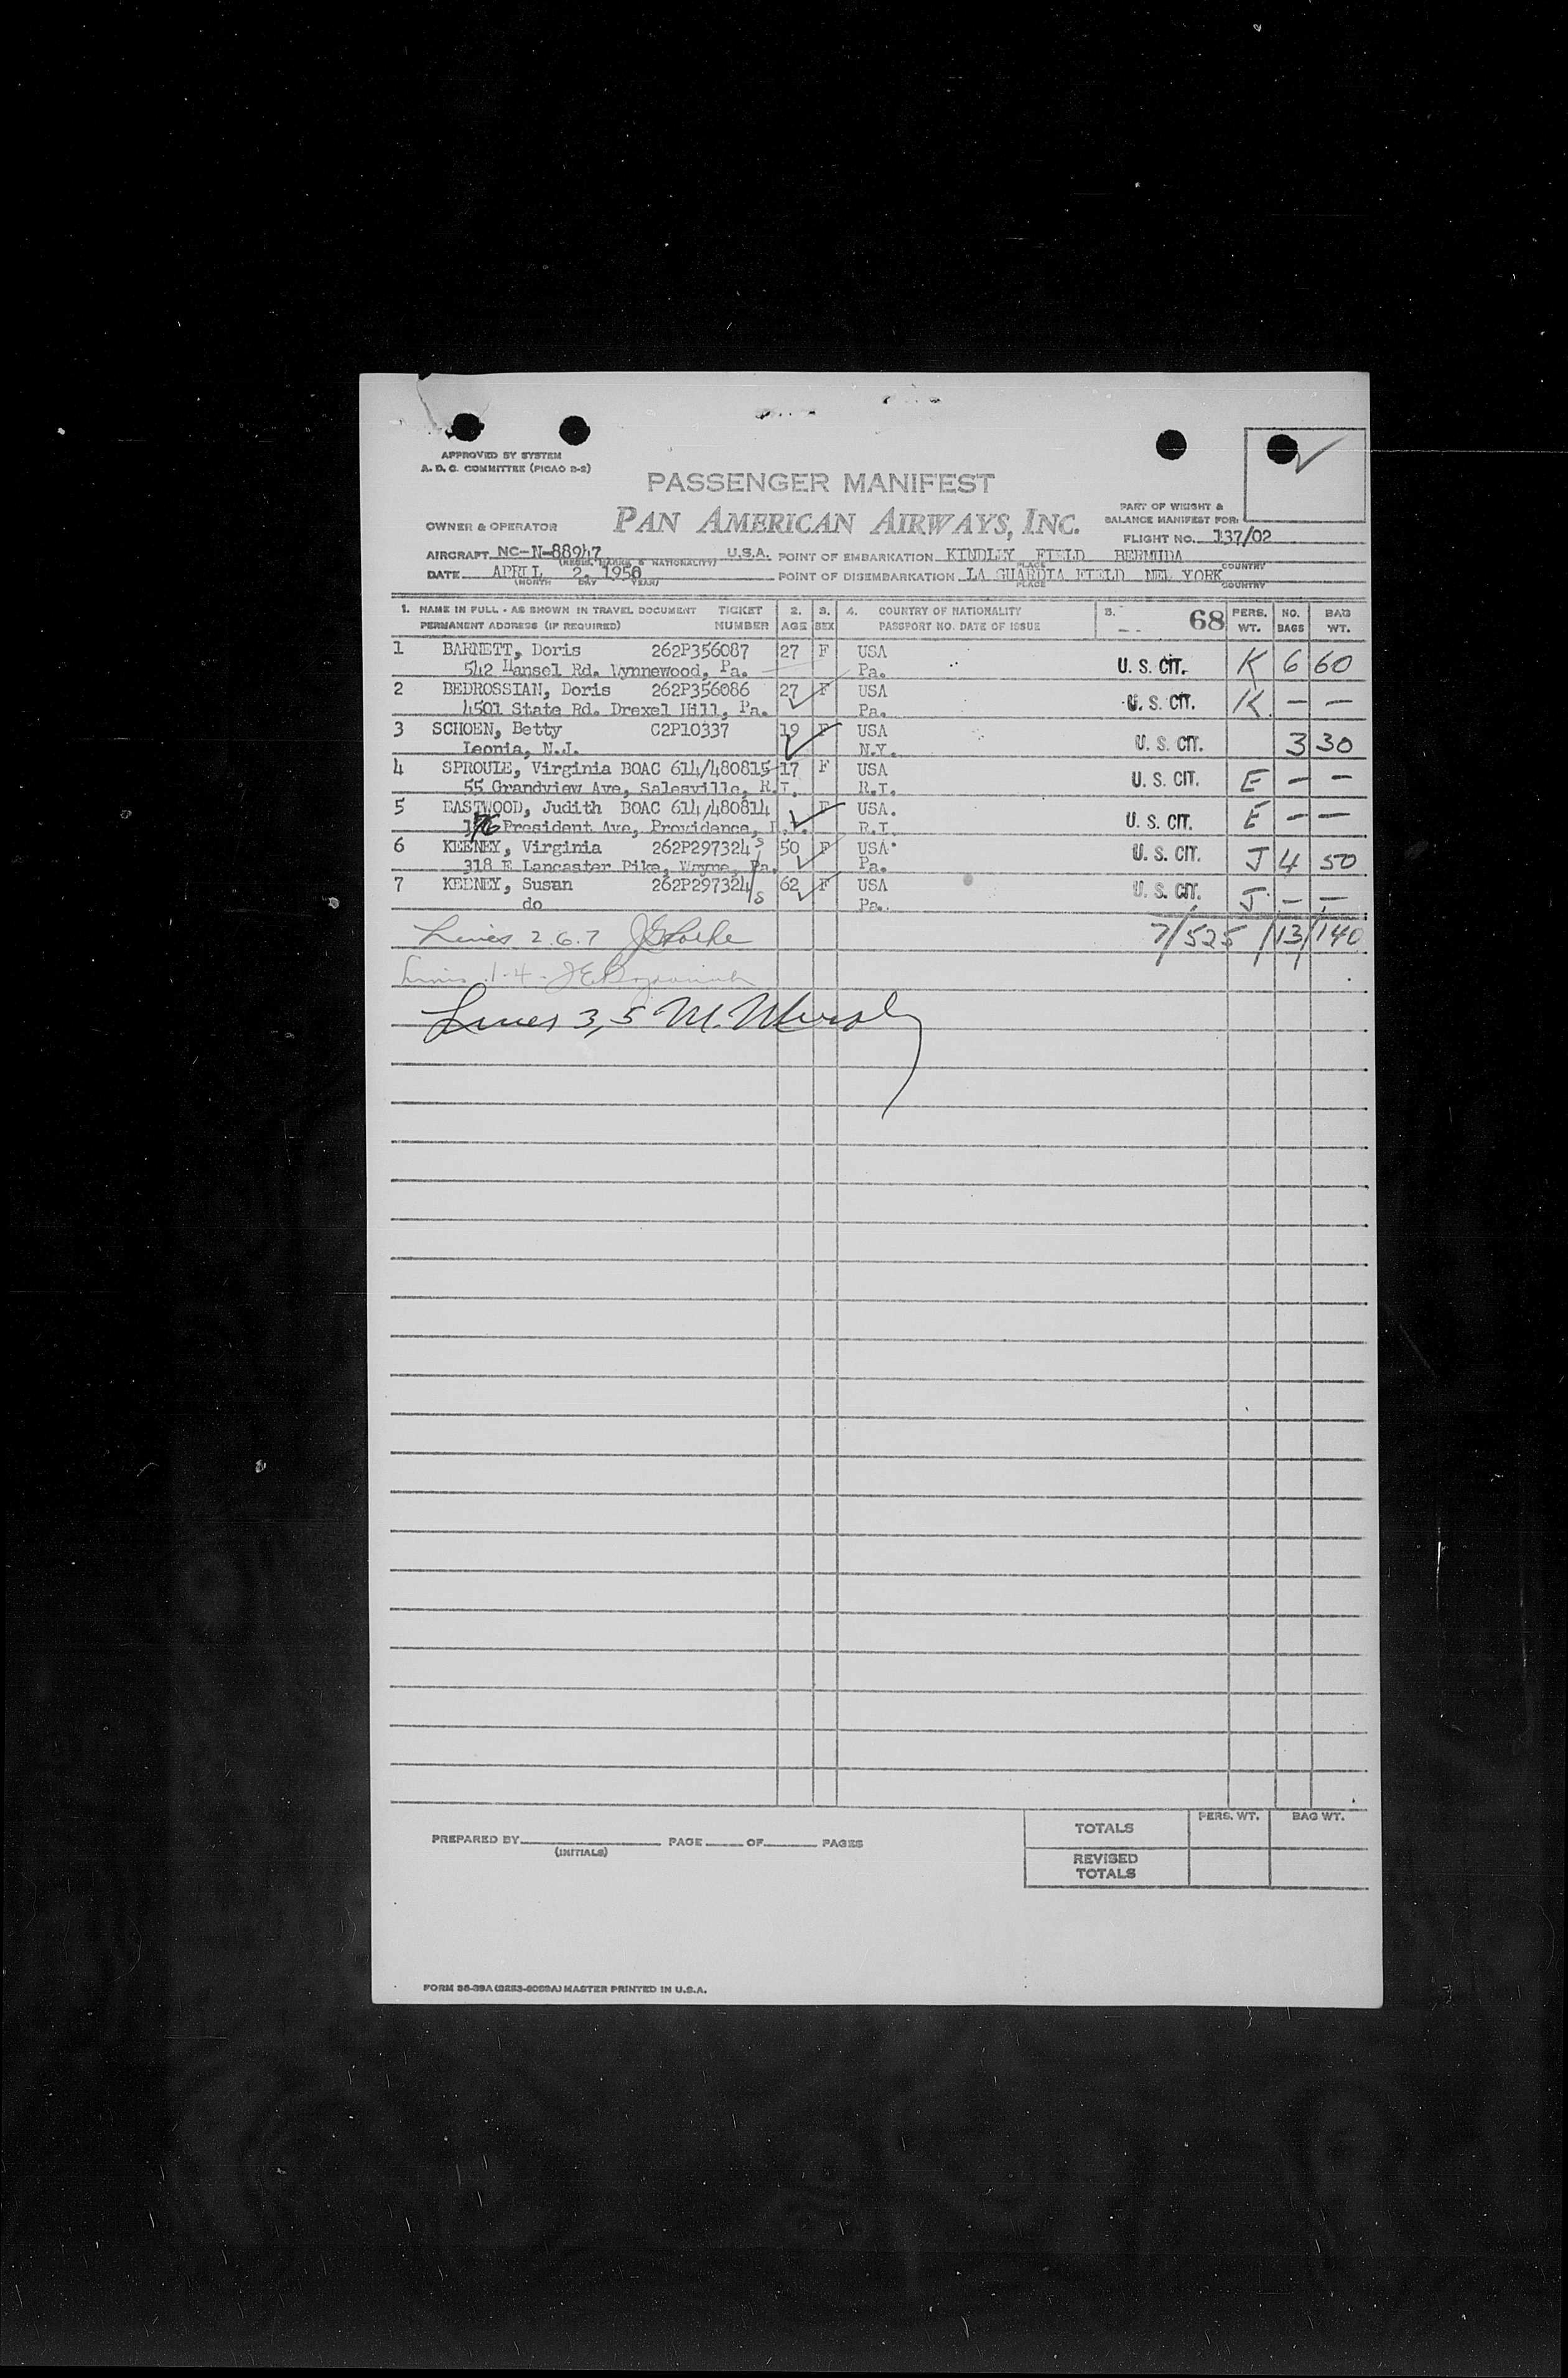 APPROVED BY SYSTEM
A. D. C. COMMITTEE (PICAO 2-2)
PASSENGER MANIFEST
OWNER & OPERATOR PAN AMERICAN AIRWAYS, INC.
PART OF WEIGHT &
BALANCE MANIFEST FOR:
FLIGHT NO. 137/02
AIRCRAFT NC-N-88947 U.S.A. POINT OF EMBARKATION KINDLEY FIELD BERMUDA
(REGIS. MARKS & NATIONALITY) PLACE COUNTRY
DATE APRIL 2, 1950 POINT OF DISEMBARKATION LA GUARDIA FIELD NEW YORK
(MONTH DAY YEAR) PLACE COUNTRY
1. NAME IN FULL - AS SHOWN IN TRAVEL DOCUMENT TICKET 2. 3. 4. COUNTRY OF NATIONALITY 5. 68 PERS. NO. BAG
PERMANENT ADDRESS (IF REQUIRED) NUMBER AGE SEX PASSPORT NO. DATE OF ISSUE WT. BAGS WT.
1 BARNETT, Doris 262P356087 27 F USA
542 Hansel Rd. Wynnewood, Pa. Pa. U. S. CIT. K 6 60
2 BEDROSSIAN, Doris 262P356086 27 F USA
4501 State Rd. Drexel Hill, Pa. Pa. U. S. CIT. K — —
3 SCHOEN, Betty C2P10337 19 F USA
Leonia, N.J. N.Y. U. S. CIT. 3 30
4 SPROULE, Virginia BOAC 614/480815 17 F USA
55 Grandview Ave, Salesville, R.I. R.I. U. S. CIT. E — —
5 EASTWOOD, Judith BOAC 614/480814 F USA.
176 President Ave, Providence, R.I. U. S. CIT. E — —
6 KEENEY, Virginia 262P297324 s 50 F USA
318 E Lancaster Pike, Wayne, Pa. Pa. U. S. CIT. J 4 50
7 KEENEY, Susan 262P297324/s 62 F USA
do Pa. U. S. CIT. J — —
Lines 2.6.7 7/525/13/140
Lines 1-4
Lines 3,5 M. Murphy
PREPARED BY (INITIALS) PAGE OF PAGES
PERS. WT. BAG WT.
TOTALS
REVISED
TOTALS
MASTER PRINTED IN U.S.A.